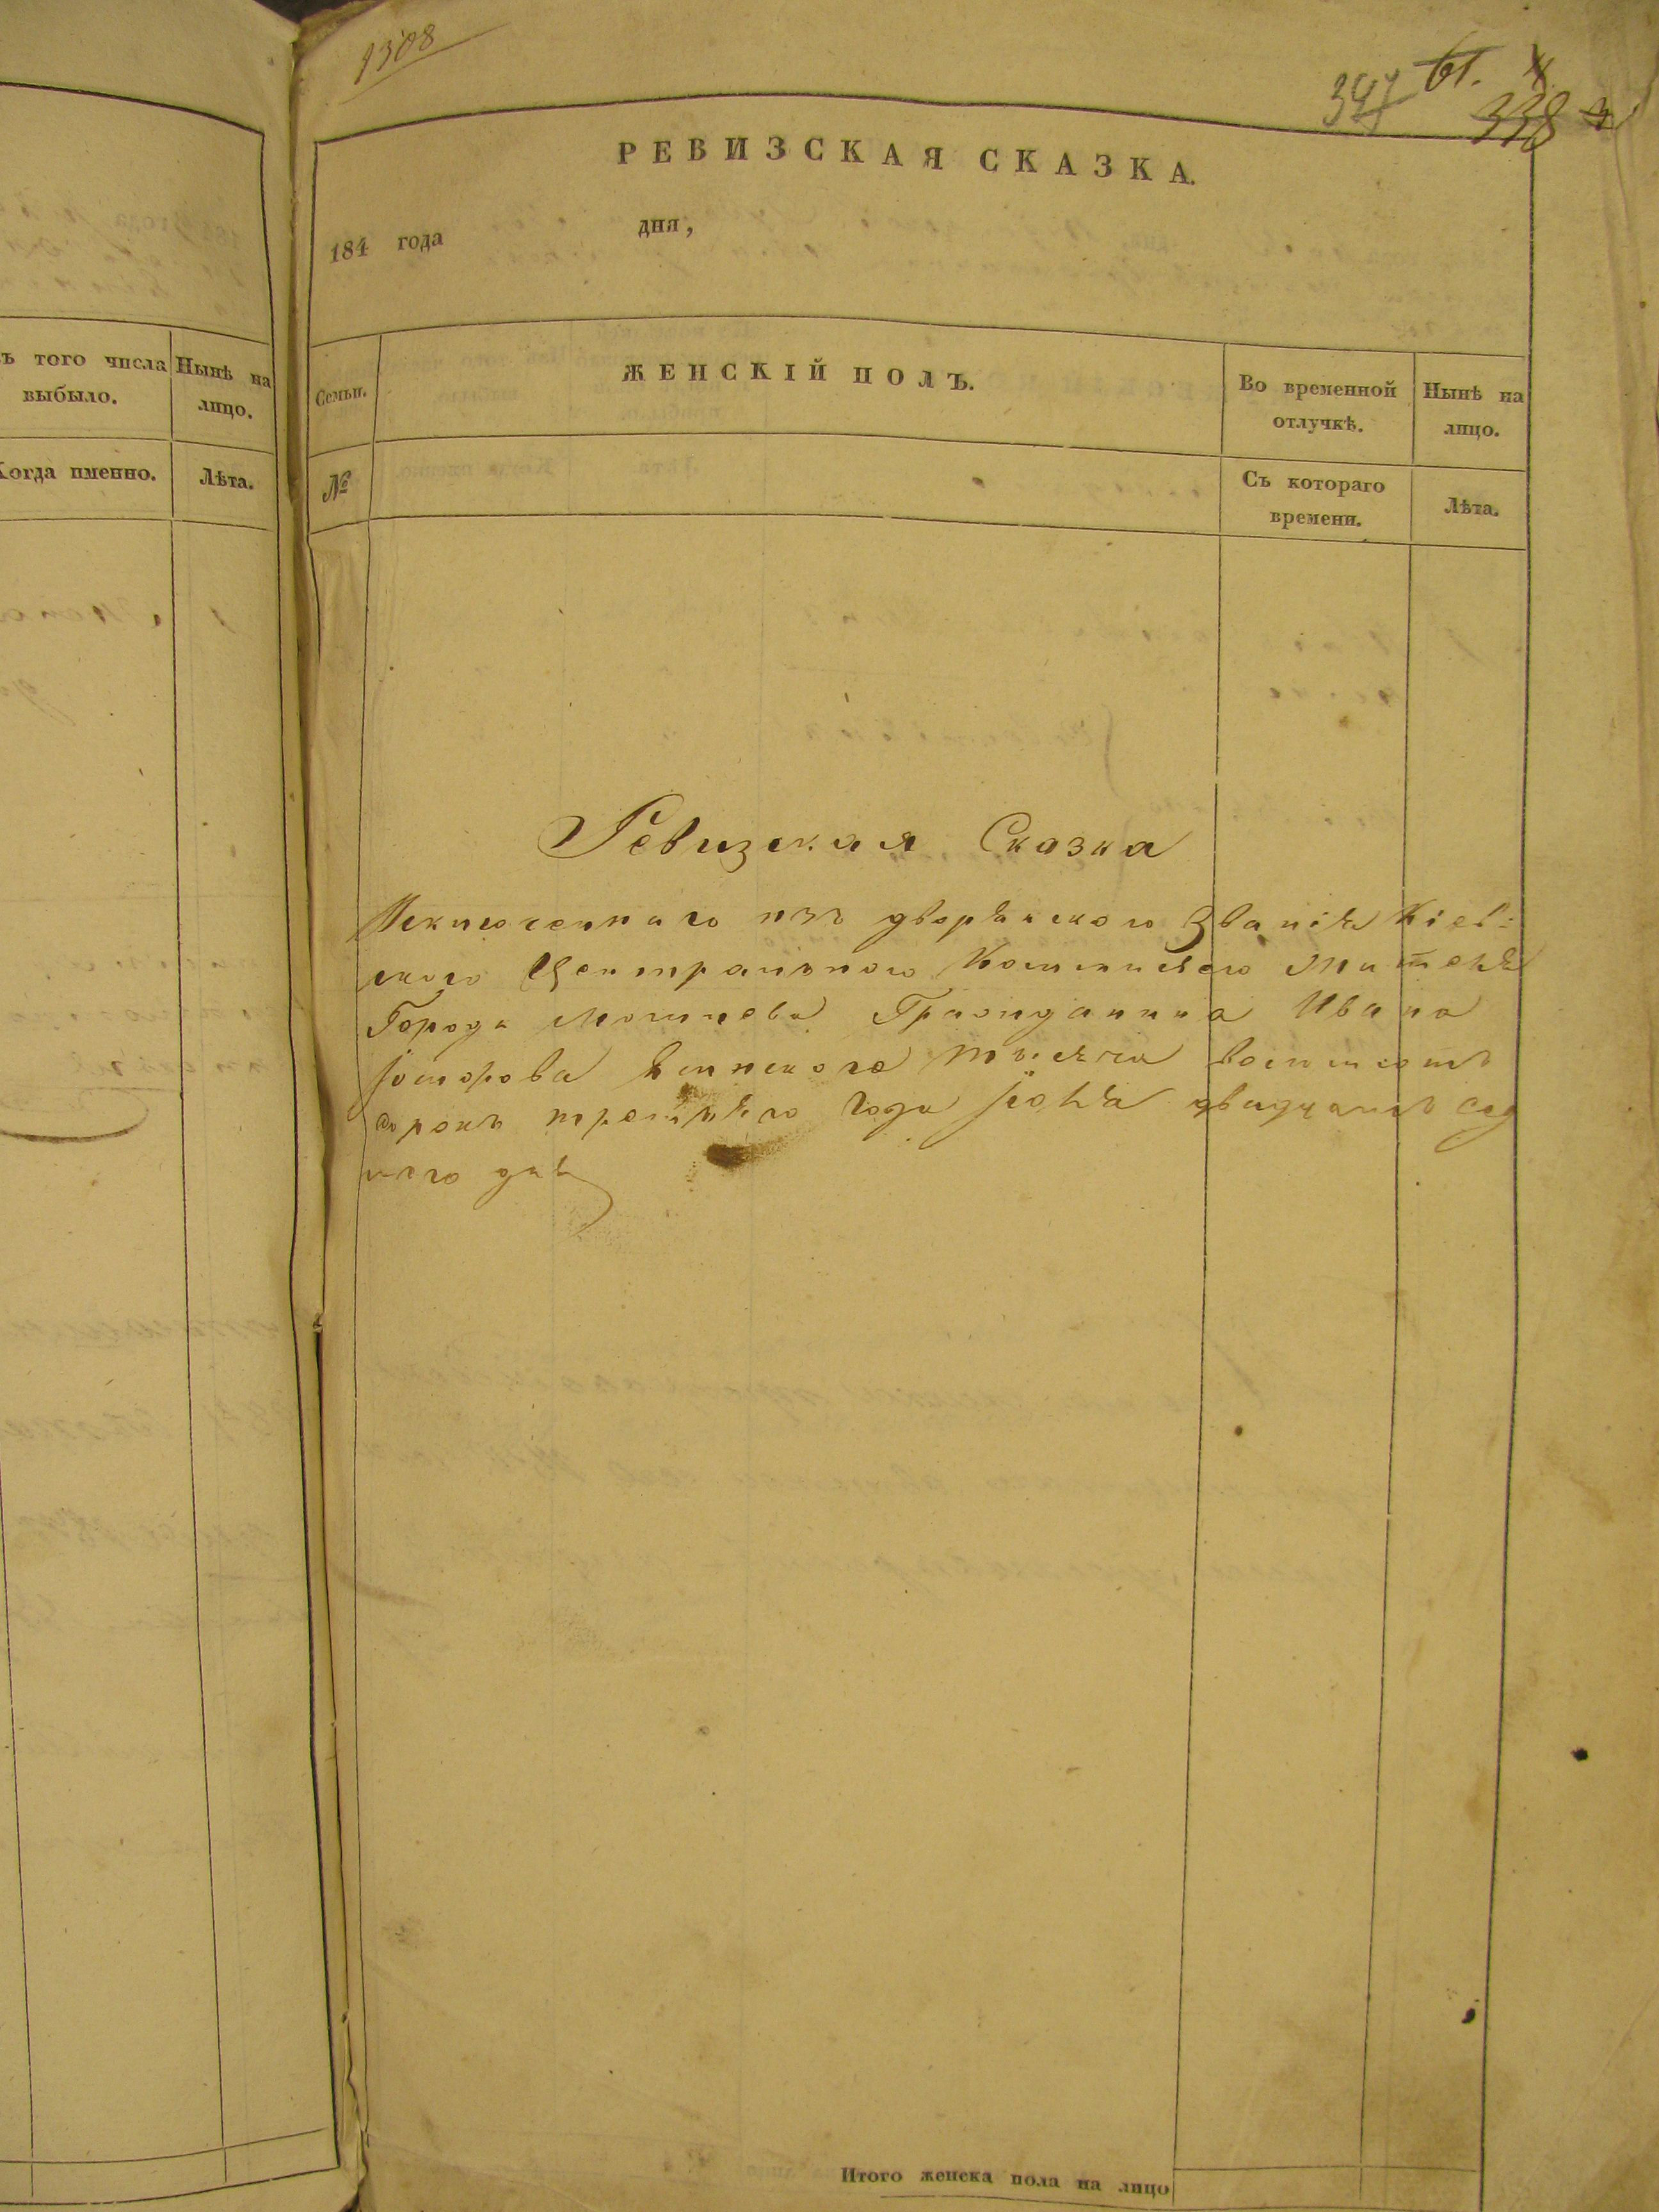 1308
347 61.
338
РЕВИЗСКАЯ СКАЗКА.
184 года дня,
того числа выбыло.
Нынѣ на лицо.
Когда именно.
Лѣта.
Семьи.
ЖЕНСКІЙ ПОЛЪ.
Во временной отлучкѣ.
Нынѣ на лицо.
№
Съ котораго времени.
Лѣта.
Ревизская Сказка
Исключеннаго изъ дворянского Званія Кіев-
ского Центрального Комисіею Жителя
Города Могилева Гражданина Ивана
тысяча восемсотъ
сорокъ третьяго Года Іюня двадцать сед
мого дня
Итого женска пола на лицо